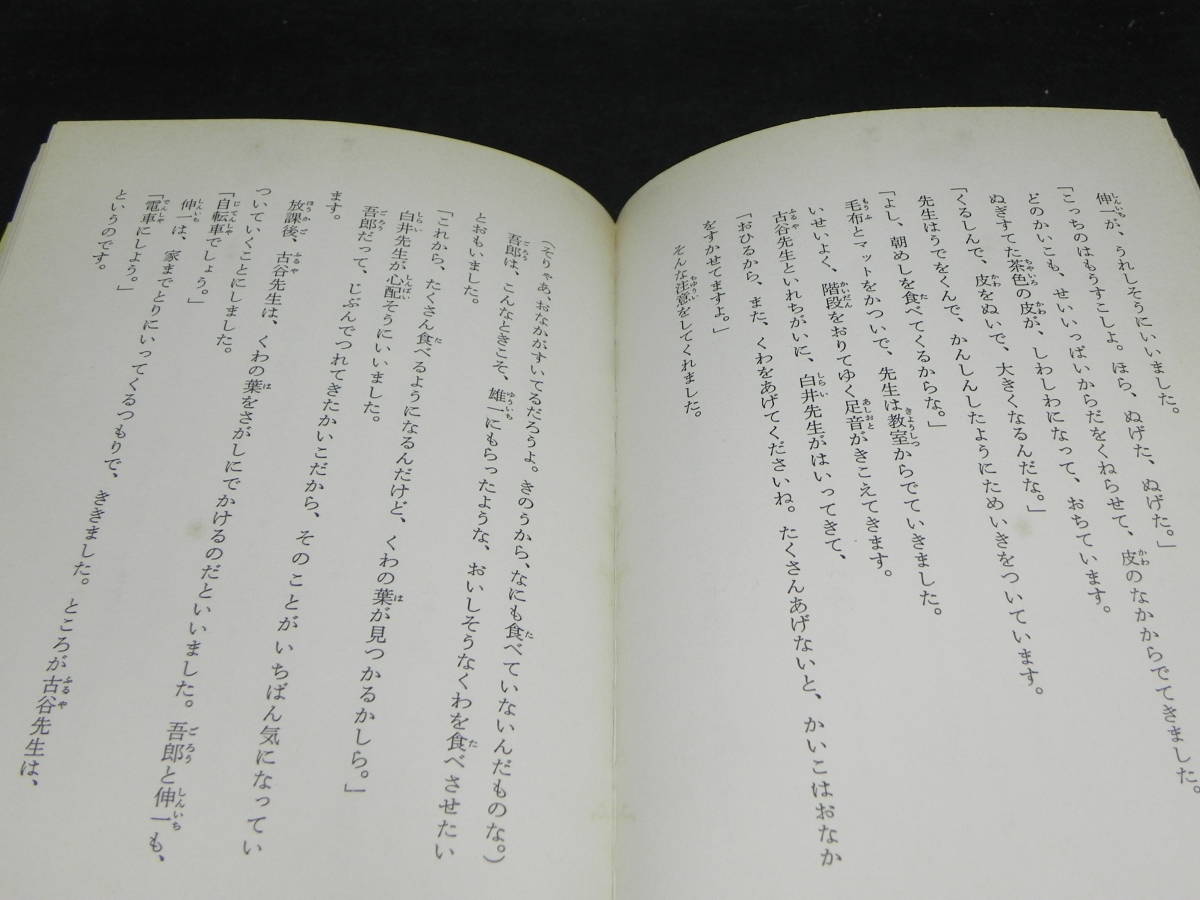 伸一が、うれしそうにいいました。
「こっちのはもうすこしよ。ほら、ぬげた、ぬげた。」
どのかいこも、せいいっぱいからだをくねらせて、皮のなかからでてきました。
ぬぎすてた茶色の皮が、しわしわになって、おちています。
「くるしんで、皮をぬいで、大きくなるんだな。」
先生はうでをくんで、かんしんしたようにためいきをついています。
「よし、朝めしを食べてくるからな。」
毛布とマットをかついで、先生は教室からでていきました。
いせいよく、階段をおりてゆく足音がきこえてきます。
古谷先生といれちがいに、白井先生がはいってきて、
「おひるから、また、くわをあげてくださいね。たくさんあげないと、かいこはおなか
をすかせてますよ。」
そんな注意をしてくれました。
(そりゃあ、おなかがすいてるだろうよ。きのうから、なにも食べていないんだものな。)
吾郎は、こんなときこそ、雄一にもらったような、おいしそうなくわを食べさせたい
とおもいました。
「これから、たくさん食べるようになるんだけど、くわの葉が見つかるかしら。」
白井先生が心配そうにいいました。
吾郎だって、じぶんでつれてきたかいこだから、そのことがいちばん気になってい
ます。
放課後、古谷先生は、くわの葉をさがしにでかけるのだといいました。吾郎と伸一も、
ついていくことにしました。
「自転車でしょう。」
伸一は、家までとりにいってくるつもりで、ききました。ところが古谷先生は、
「電車にしよう。」
というのです。